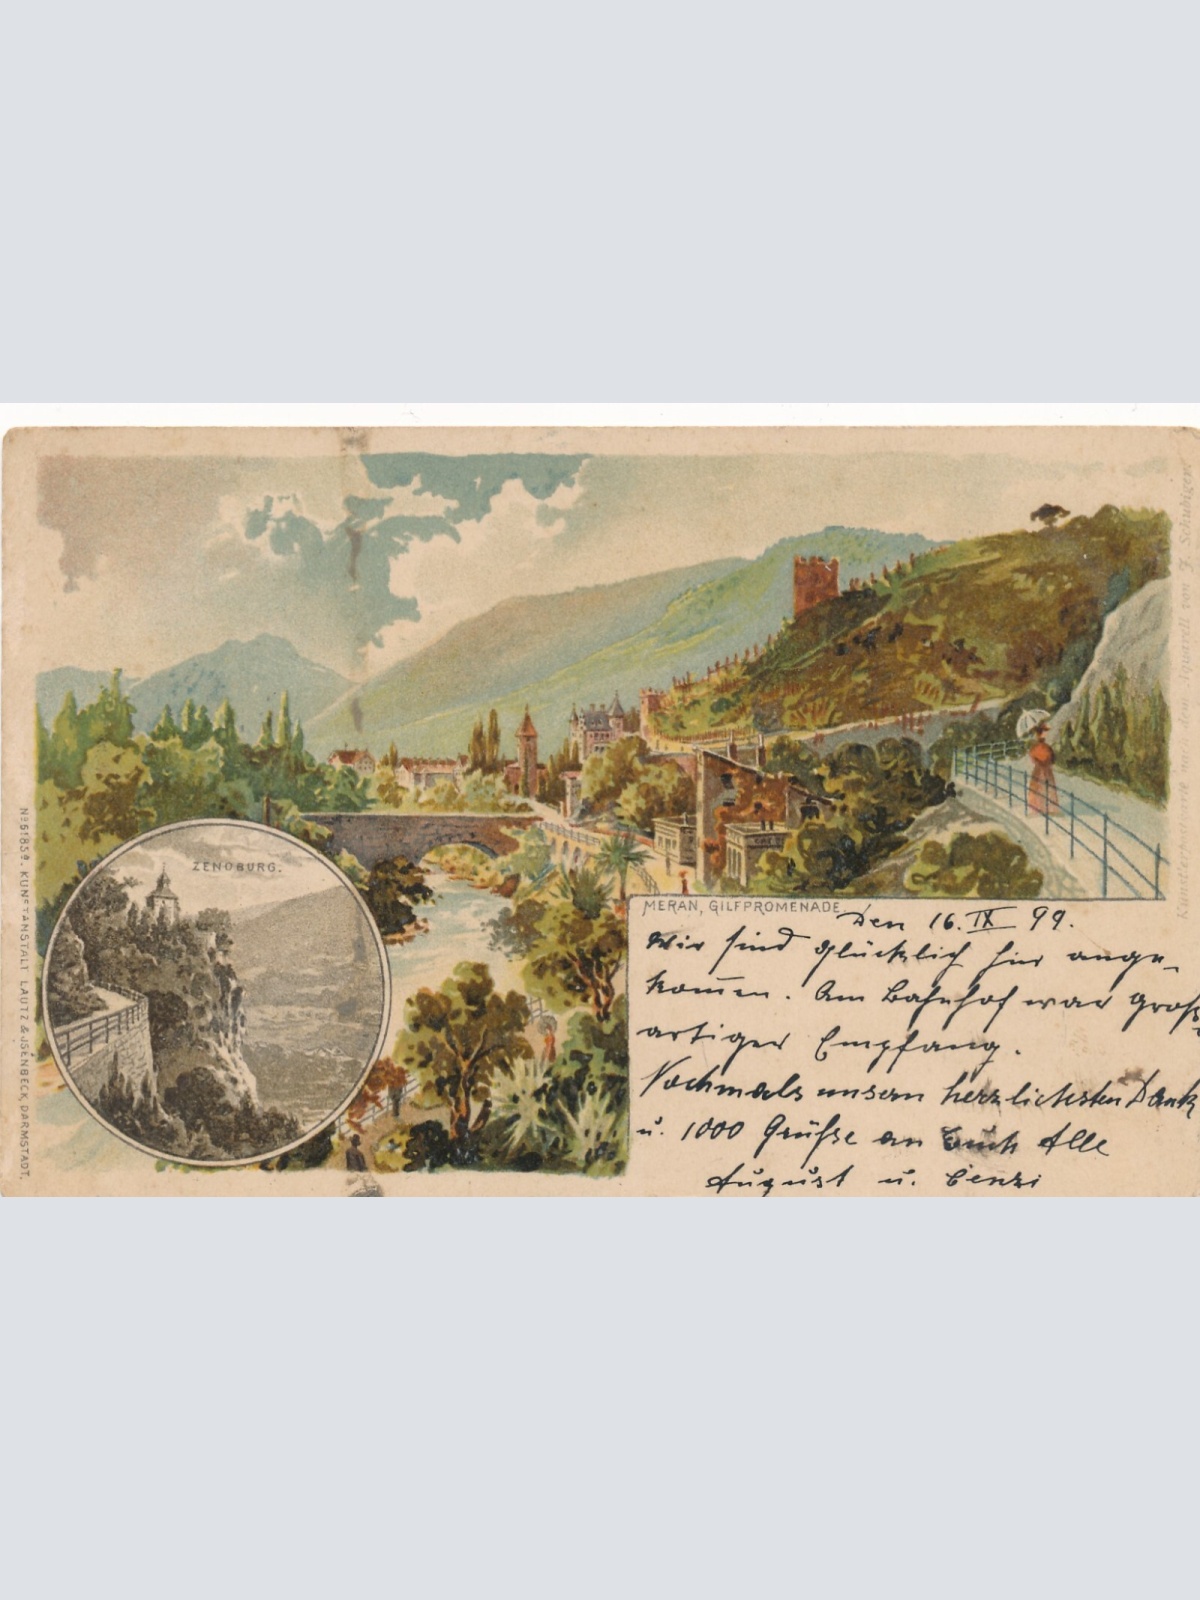 ZENOBURG.
MERAN, GILFPROMENADE
Den 16. IX 99.
Wir sind glücklich hier ange-
kom̄en. Am Bahnhof war groß-
artiger Empfang.
Nochmals unsern herzlichsten Dank
u. 1000 Grüße an Euch Alle
August u. Cenzi
No 5185a. KUNSTANSTALT LAUTZ & JSENBECK, DARMSTADT.
Künstlerkarte nach dem Aquarell von F. Schubiger